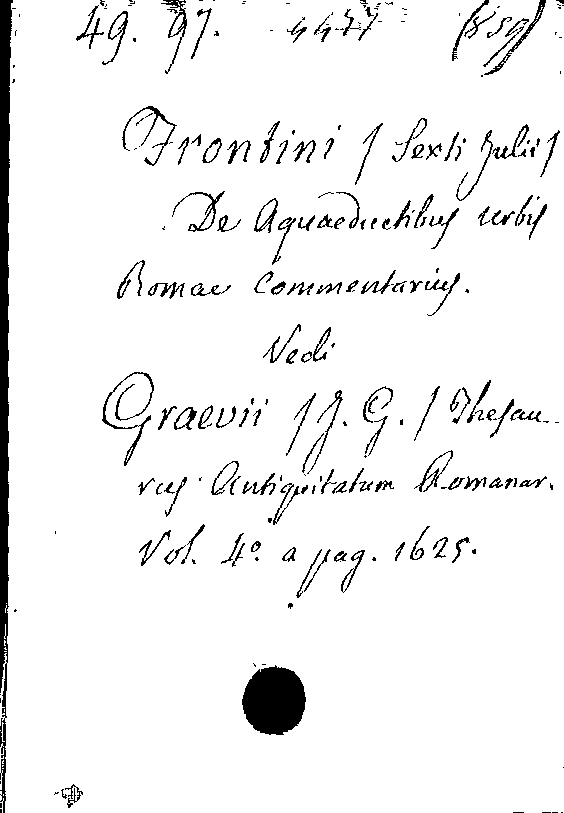 49. 97. 4477 (859)
Frontini / Sexti Julii /
De Aquaeductibus urbis
Romae Commentarius.
Vedi
Graevii / J. G. / Thesau-
rus Antiquitatum Romanar.
Vol. 4.º a pag. 1625.